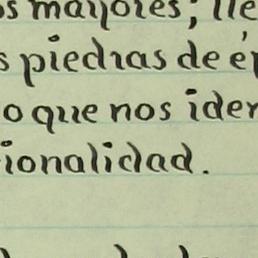 os mayores; lle
s piedras de é
o que nos iden
ionalidad.